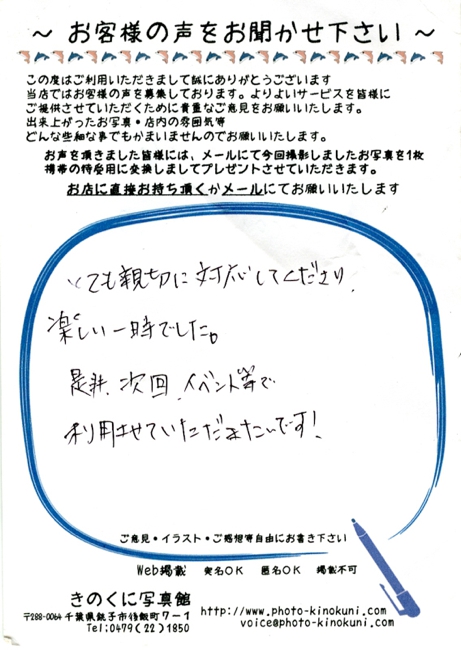 ～ お客様の声をお聞かせ下さい ～
この度はご利用いただきまして誠にありがとうございます
当店ではお客様の声を募集しております。よりよいサービスを皆様に
ご提供させていただくために貴重なご意見をお願いいたします。
出来上がったお写真・店内の雰囲気等
どんな些細な事でもかまいませんのでお願いいたします。
お声を頂きました皆様には、メールにて今回撮影しましたお写真を1枚
携帯の待受用に変換しましてプレゼントさせていただきます。
お店に直接お持ち頂くかメールにてお願いいたします
とても親切に対応してくださり、
楽しい一時でした。
是非、次回、イベント等で
利用させていただきたいです!
ご意見・イラスト・ご感想等自由にお書き下さい
Web掲載 実名OK 匿名OK 掲載不可
きのくに写真館
〒288-0064 千葉県銚子市後飯町7-1
Tel:0479(22)1850
http://www.photo-kinokuni.com/
voice@photo-kinokuni.com/